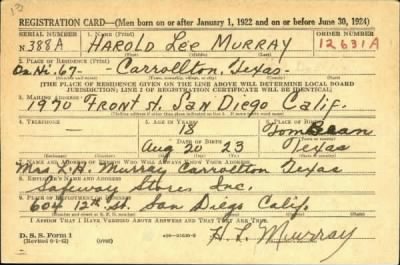 REGISTRATION CARD—(Men born on or after January 1, 1922 and on or before June 30, 1924)
SERIAL NUMBER 1. NAME (Print) ORDER NUMBER
N 388A HAROLD Lee MURRAY 12631A
2. PLACE OF RESIDENCE (Print)
On Hi. 67- Carrollton, Texas.
[THE PLACE OF RESIDENCE GIVEN ON THE LINE ABOVE WILL DETERMINE LOCAL BOARD
JURISDICTION; LINE 2 OF REGISTRATION CERTIFICATE WILL BE IDENTICAL]
3. MAILING ADDRESS
1970 Front st. San Diego Calif.
4. TELEPHONE 5. AGE IN YEARS 6. PLACE OF BIRTH
— 18 Tom Bean
DATE OF BIRTH
Aug 20 23 Texas
7. NAME AND ADDRESS OF PERSON WHO WILL ALWAYS KNOW YOUR ADDRESS
Mrs. L.H. Murray Carrollton Texas
8. EMPLOYER'S NAME AND ADDRESS
Safeway Stores Inc.
9. PLACE OF EMPLOYMENT OR BUSINESS
604 12th st. San Diego Calif.
I AFFIRM THAT I HAVE VERIFIED ABOVE ANSWERS AND THAT THEY ARE TRUE.
D. S. S. Form 1
H. L. Murray